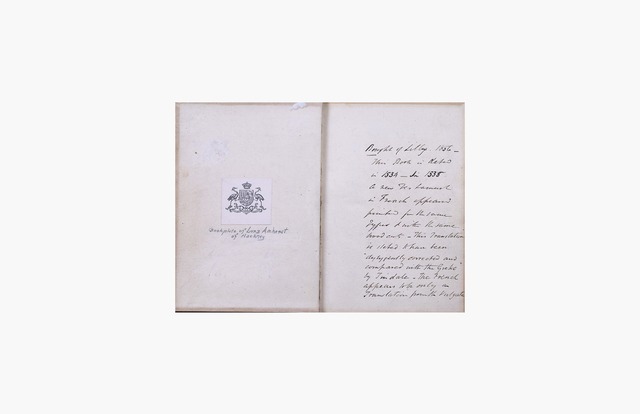 Bookplate of Lord Amherst
of Hackney
Bought of Lilly 1856 –
This Book is dated
in 1538 – In 1538
a new Testament
in French appeared
printed for the same
types & with the same
wood cuts – This Translation
is stated to have been
dylygently corrected and
compared with the Greke
by Tindale – The French
appears to be only a
Translation from the Vulgate